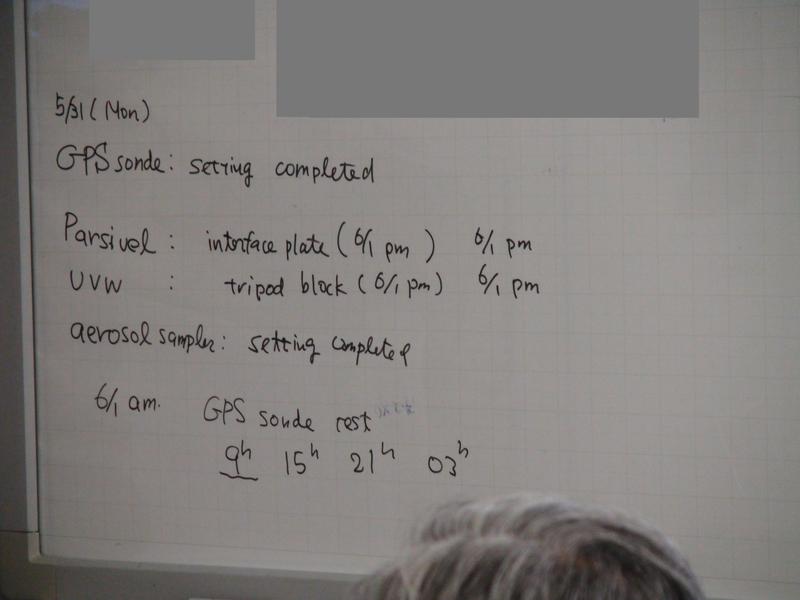 5/31 (Mon)
GPS sonde: setting completed
Parsivel : interface plate (6/1 pm) 6/1 pm
UVW : tripod block (6/1 pm) 6/1 pm
aerosol sampler: setting completed
6/1 am. GPS sonde rest
9h 15h 21h 03h